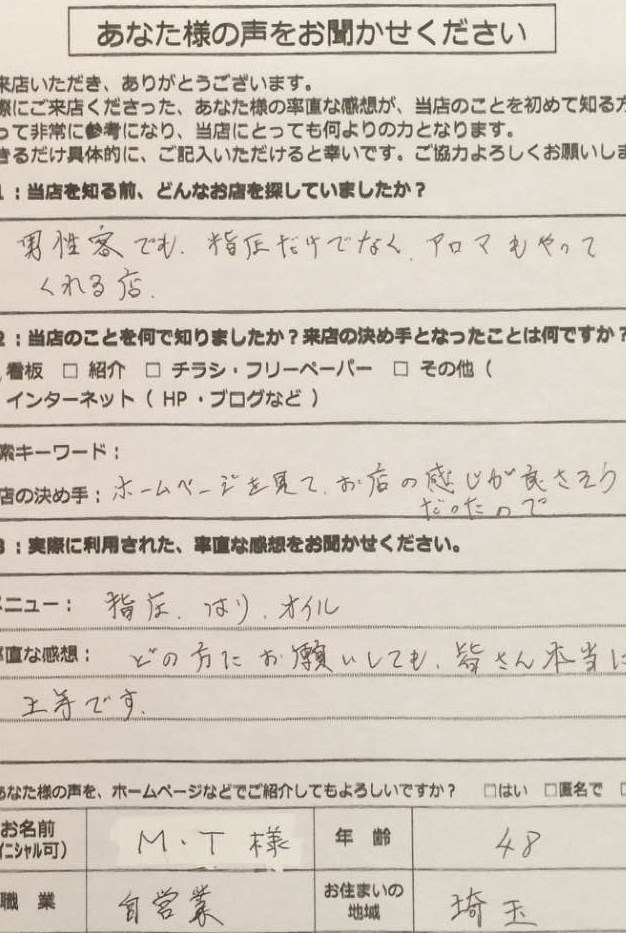 あなた様の声をお聞かせください
来店いただき、ありがとうございます。
際にご来店くださった、あなた様の率直な感想が、当店のことを初めて知る方
って非常に参考になり、当店にとっても何よりの力となります。
きるだけ具体的に、ご記入いただけると幸いです。ご協力よろしくお願いしま
1：当店を知る前、どんなお店を探していましたか？
男性客でも、指圧だけでなく、アロマもやって
くれる店。
2：当店のことを何で知りましたか？来店の決め手となったことは何ですか？
看板 □ 紹介 □ チラシ・フリーペーパー □ その他（
インターネット（ HP ・ブログなど ）
索キーワード：
店の決め手：ホームページを見て、お店の感じが良さそう
だったので
3：実際に利用された、率直な感想をお聞かせください。
メニュー： 指圧、はり、オイル
率直な感想： どの方にお願いしても、皆さん本当に
上手です。
あなた様の声を、ホームページなどでご紹介してもよろしいですか？ □はい □匿名で □
お名前 M・T 様 年 齢 48
(イニシャル可)
職 業 自営業 お住まいの地域 埼玉